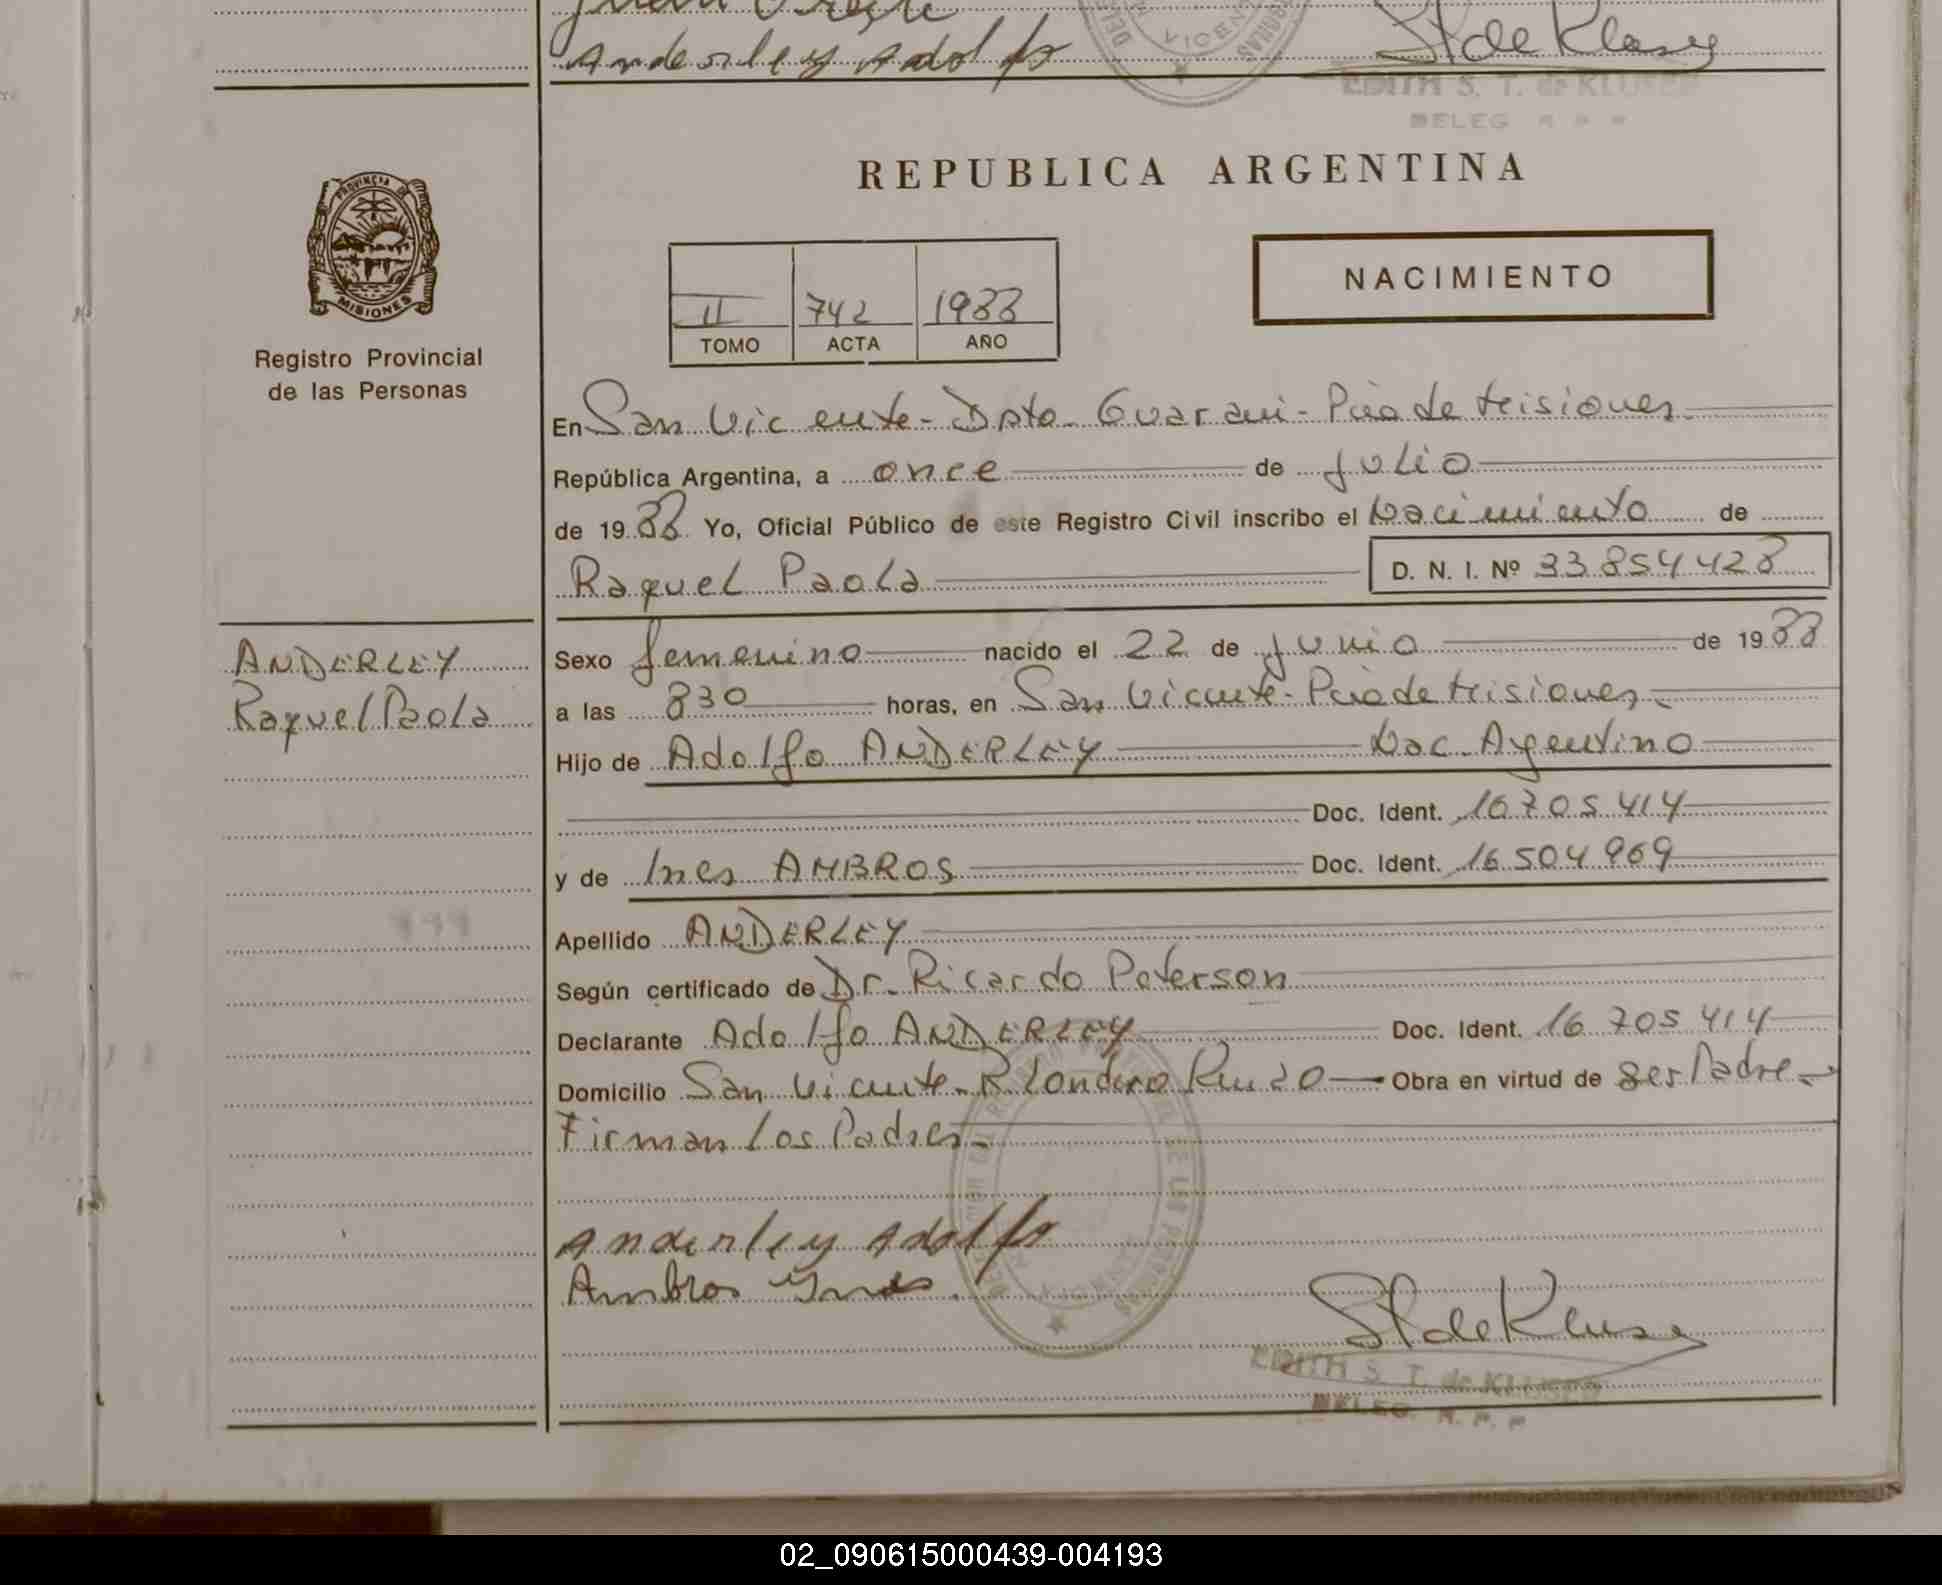 Anderley Adolfo
St de Kluser
EDITH S. T. de KLUSER
DELEG R P P
PROVINCIA DE
MISIONES
Registro Provincial
de las Personas
REPUBLICA ARGENTINA
NACIMIENTO
II 742 1988
TOMO ACTA AÑO
En San Vicente - Dpto - Guarani - Pcia de Misiones
República Argentina, a once de Julio
de 1988 Yo, Oficial Público de este Registro Civil inscribo el Nacimiento de
Raquel Paola D. N. I. Nº 33854428
ANDERLEY
Raquel Paola
Sexo femenino nacido el 22 de Junio de 1988
a las 830 horas, en San Vicente - Pcia de Misiones -
Hijo de Adolfo ANDERLEY Nac. Argentino
Doc. Ident. 16705414
y de Ines AMBROS Doc. Ident. 16504969
Apellido ANDERLEY
Según certificado de Dr. Ricardo Peterson
Declarante Adolfo ANDERLEY Doc. Ident. 16 705 414
Domicilio San Vicente - R. Londero Km 20 — Obra en virtud de ser Padre -
Firman los Padres -
Anderley Adolfo
Ambros Ines
St de Kluser
EDITH S. T. de KLUSER
DELEG. R. P. P
02_090615000439-004193